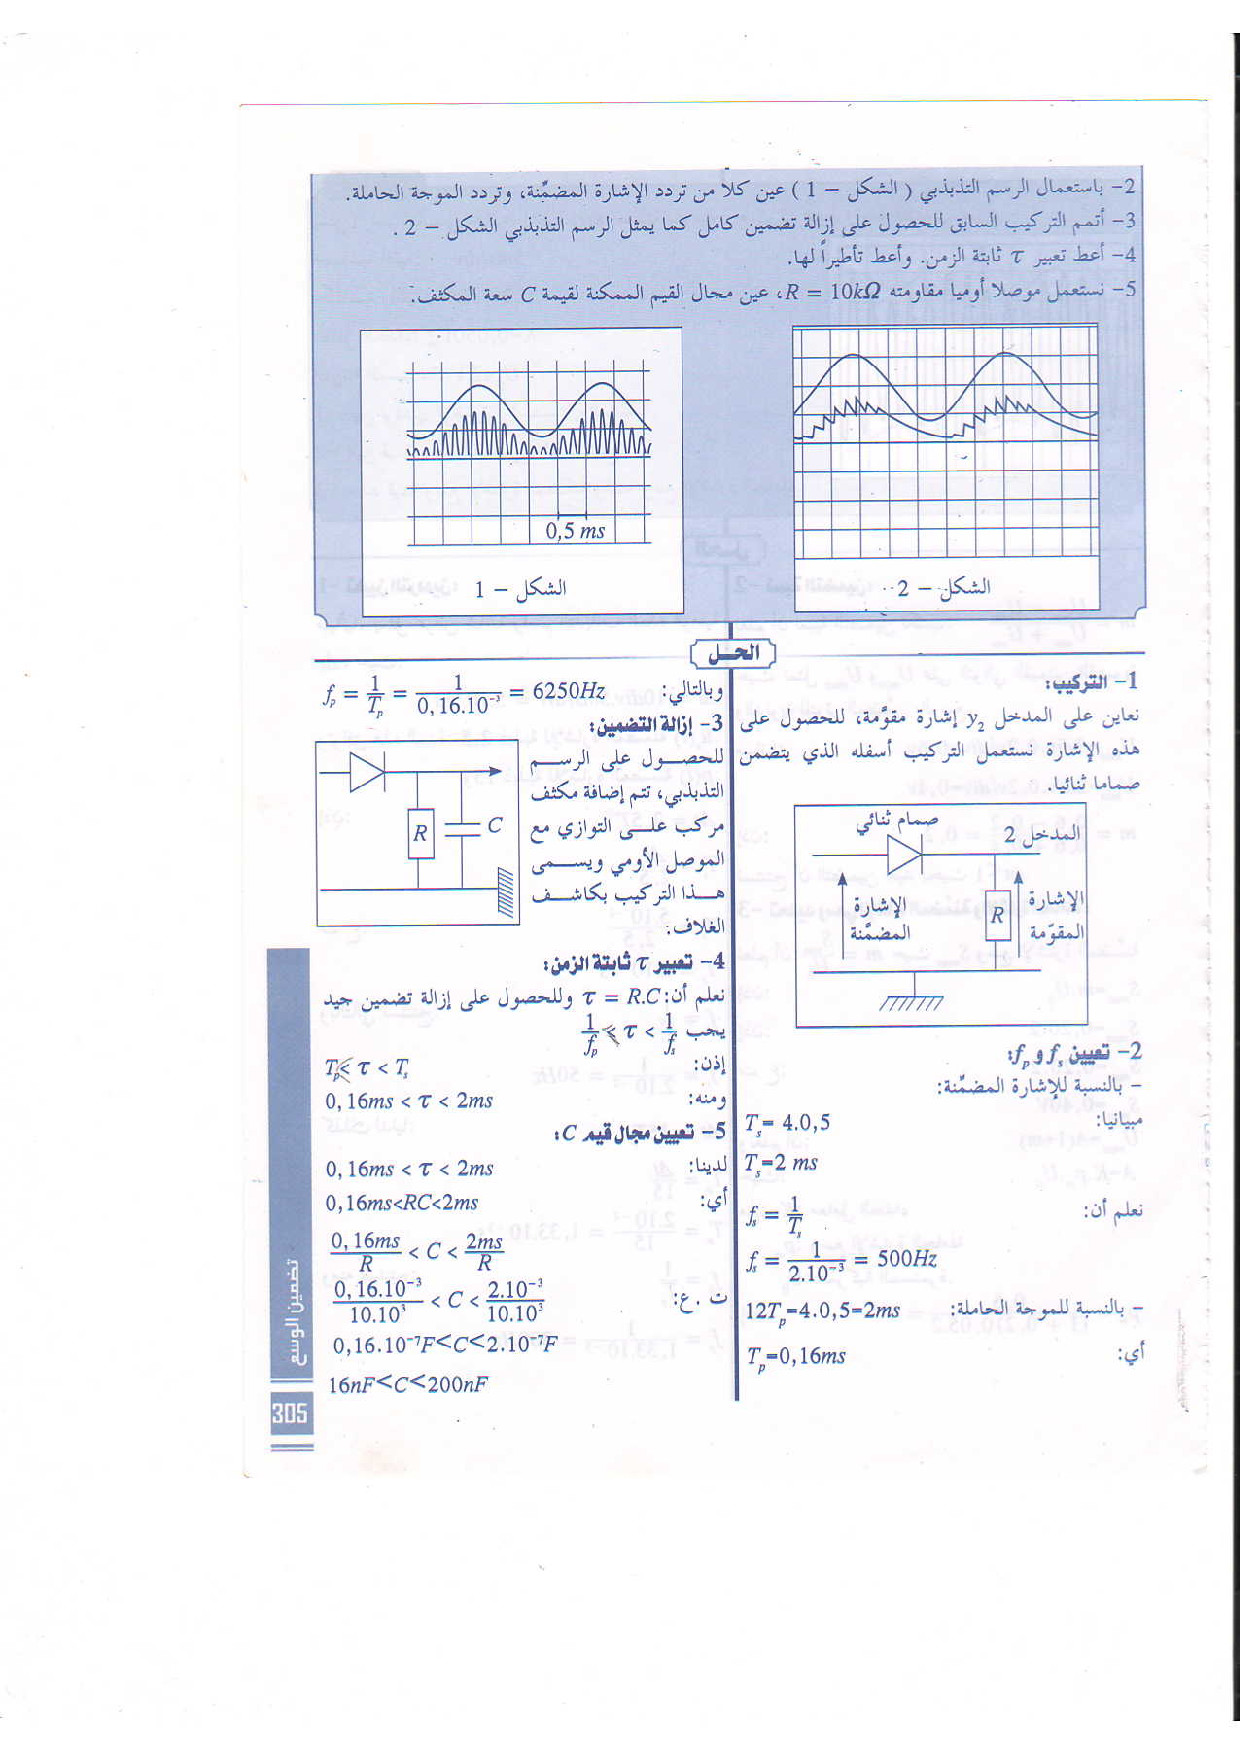 2- باستعمال الرسم التذبذبي ( الشكل – 1 ) عين كلاً من تردد الإشارة المضمَّنة، وتردد الموجة الحاملة.
3- أتمم التركيب السابق للحصول على إزالة تضمين كامل كما يمثل لرسم التذبذبي الشكل – 2 .
4- أعط تعبير τ ثابتة الزمن. وأعط تأطيراً لها.
5- نستعمل موصلا أوميا مقاومته R = 10kΩ، عين مجال القيم الممكنة لقيمة C سعة المكثف.
0,5 ms
الشكل – 1
الشكل – 2
الحل
1- التركيب:
نعاين على المدخل y₂ إشارة مقوَّمة، للحصول على
هذه الإشارة نستعمل التركيب أسفله الذي يتضمن
صماما ثنائيا.
صمام ثنائي
المدخل 2
الإشارة
المضمَّنة
R
الإشارة
المقوّمة
2- تعيين fₛ و fₚ:
– بالنسبة للإشارة المضمَّنة:
مبيانيا: Tₛ= 4.0,5
Tₛ=2 ms
نعلم أن: fₛ = 1/Tₛ
fₛ = 1/2.10⁻³ = 500Hz
– بالنسبة للموجة الحاملة: 12Tₚ=4.0,5=2ms
أي: Tₚ=0,16ms
وبالتالي: fₚ = 1/Tₚ = 1/0,16.10⁻³ = 6250Hz
3- إزالة التضمين:
للحصول على الرسم
التذبذبي، تتم إضافة مكثف
مركب على التوازي مع
الموصل الأومي ويسمى
هذا التركيب بكاشف
الغلاف.
R
C
4- تعبير τ ثابتة الزمن:
نعلم أن: τ = R.C وللحصول على إزالة تضمين جيد
يجب 1/fₚ ≪ τ < 1/fₛ
إذن: Tₚ≪ τ < Tₛ
ومنه: 0,16ms < τ < 2ms
5- تعيين مجال قيم C:
لدينا: 0,16ms < τ < 2ms
أي: 0,16ms<RC<2ms
0,16ms/R < C < 2ms/R
ت.ع: 0,16.10⁻³/10.10³ < C < 2.10⁻³/10.10³
0,16.10⁻⁷F<C<2.10⁻⁷F
16nF<C<200nF
تضمين الوسع
305